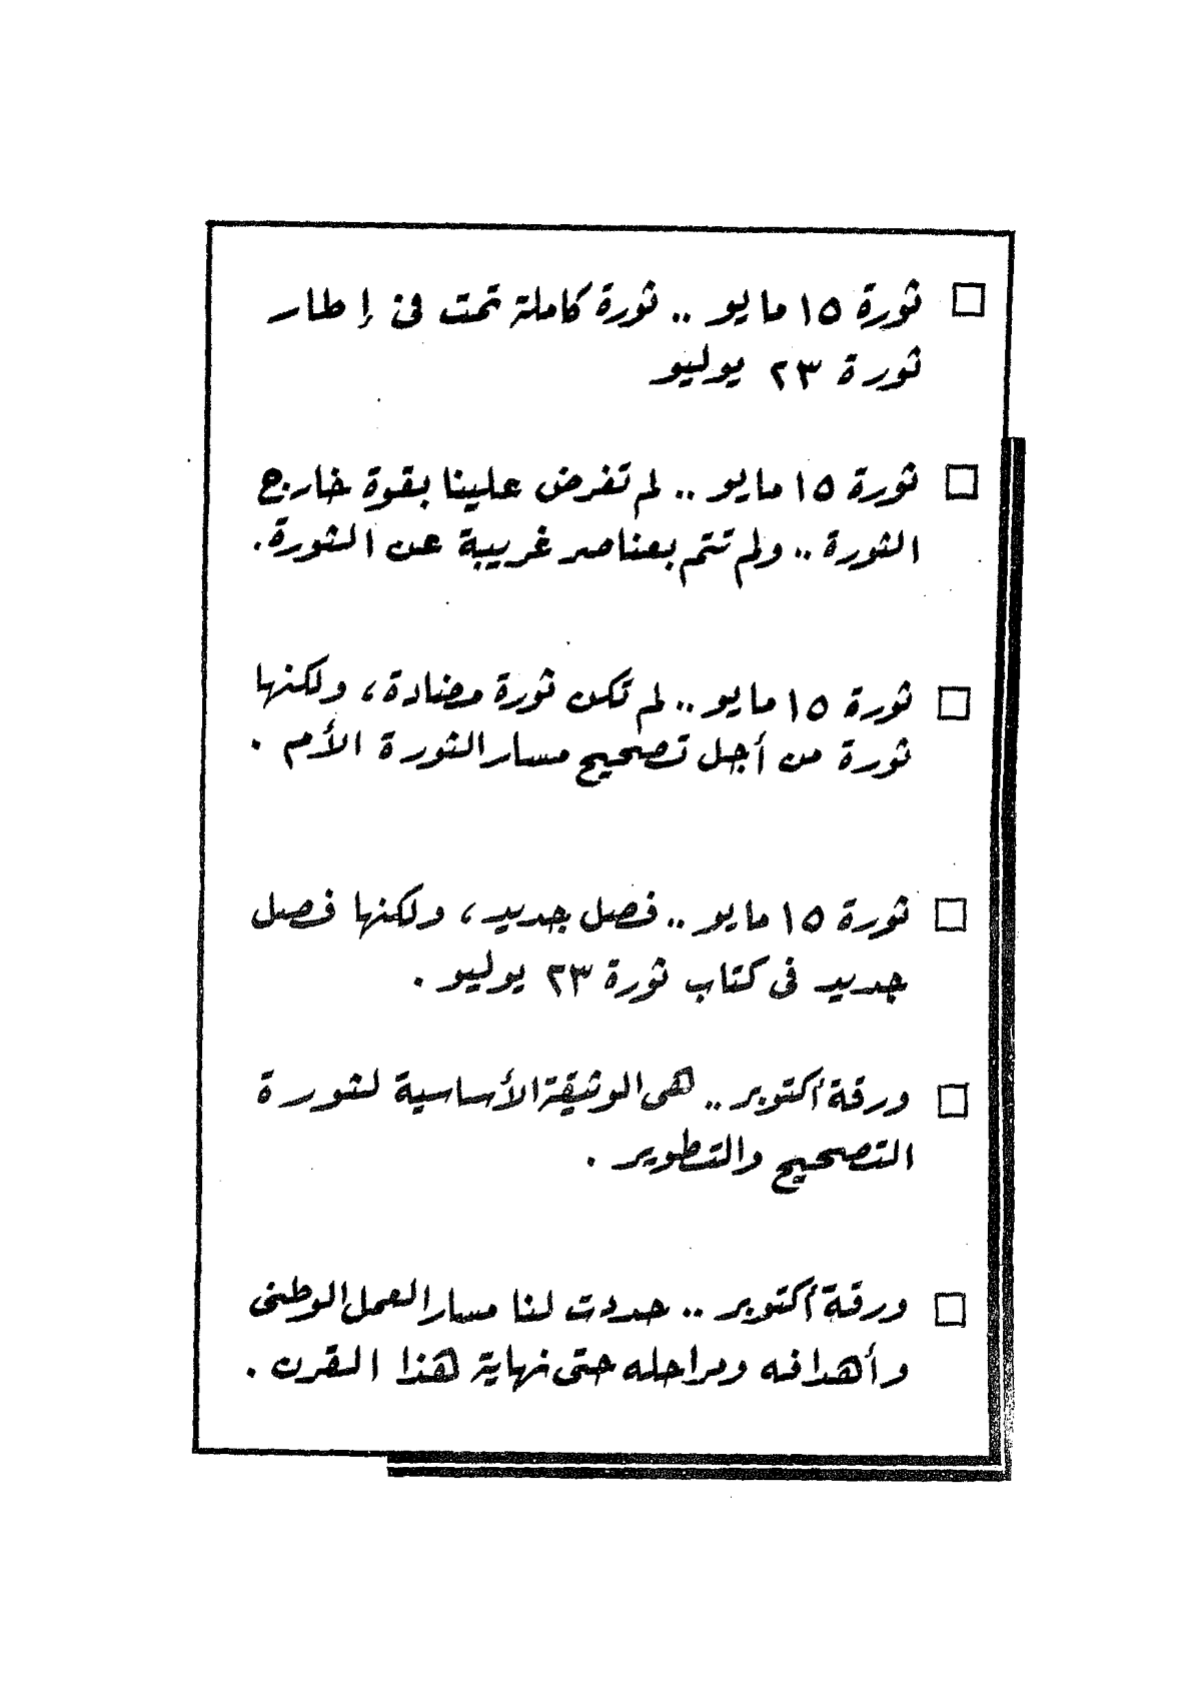 □ ثورة ١٥ مايو .. ثورة كاملة تمت فى إطار
ثورة ٢٣ يوليو
□ ثورة ١٥ مايو .. لم تفرض علينا بقوة خارج
الثورة .. ولم تتم بعناصر غريبة عن الثورة.
□ ثورة ١٥ مايو .. لم تكن ثورة مضادة ، ولكنها
ثورة من أجل تصحيح مسار الثورة الأم .
□ ثورة ١٥ مايو .. فصل جديد ، ولكنها فصل
جديد فى كتاب ثورة ٢٣ يوليو .
□ ورقة أكتوبر .. هى الوثيقة الأساسية لثورة
التصحيح والتطوير .
□ ورقة أكتوبر .. حددت لنا مسار العمل الوطنى
وأهدافه ومراحله حتى نهاية هذا القرن .